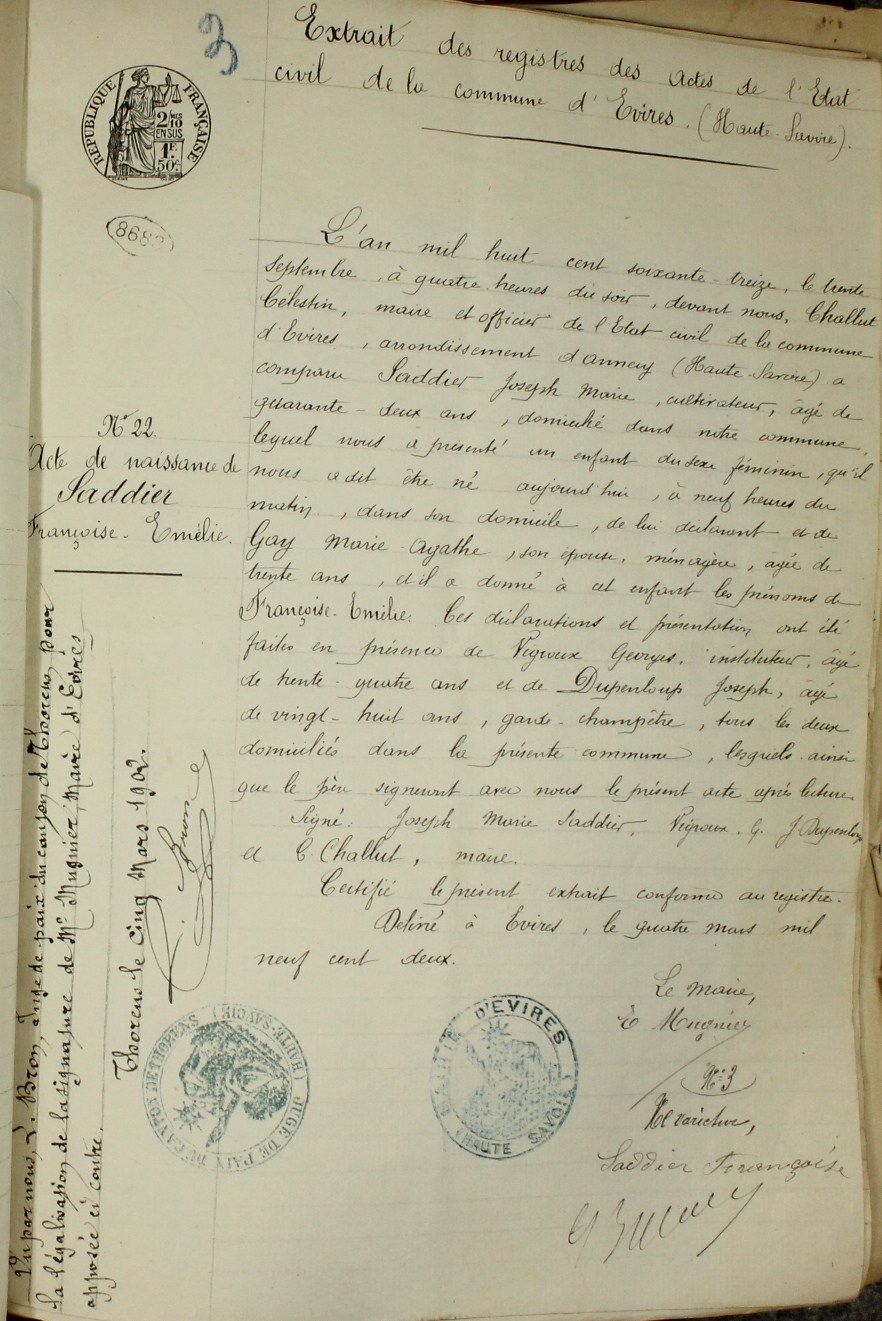 3
Extrait des registres des actes de l'Etat
civil de la commune d'Evires. (Haute-Savoie).
REPUBLIQUE FRANÇAISE
2/10
EN SUS
1F.
50c
8683
L'an mil huit cent soixante-treize, le trente
septembre, à quatre heures du soir, devant nous, Challut
Célestin, maire et officier de l'Etat civil de la commune
d'Evires, arrondissement d'Annecy (Haute-Savoie) a
comparu Saddier Joseph Marie, cultivateur, âgé de
quarante-deux ans, domicilié dans notre commune,
lequel nous a présenté un enfant du sexe féminin, qu'il
nous a dit être né aujourd'hui, à neuf heures du
matin, dans son domicile, de lui déclarant et de
Gay Marie Agathe, son épouse, ménagère, âgée de
trente ans, et il a donné à cet enfant les prénoms de
Françoise-Emélie. Ces déclarations et présentation ont été
faites en présence de Veyroux Georges, instituteur, âgé
de trente-quatre ans et de Dupenloup Joseph, âgé
de vingt-huit ans, garde-champêtre, tous les deux
domiciliés dans la présente commune, lesquels ainsi
que le père signeront avec nous le présent acte après lecture
Signé: Joseph Marie Saddier, Veyroux. G. J Dupenloup
et C. Challut, maire.
Certifié le présent extrait conforme au registre.
Délivré à Evires, le quatre mars mil
neuf cent deux.
Le Maire,
E Mugnier
N° 3
Ne varietur,
Saddier Françoise
No 22.
Acte de naissance de
Saddier
Françoise-Emélie.
Vu par nous, J. Bron, Juge de paix du canton de Thorens, pour
la légalisation de la signature de Mr Mugnier, Maire d'Evires
apposée ci contre.
Thorens le Cinq Mars 1902.
J. Bron
JUGE DE PAIX DU CANTON DE THORENS (HAUTE-SAVOIE)
MAIRIE D'EVIRES
(HAUTE SAVOIE)